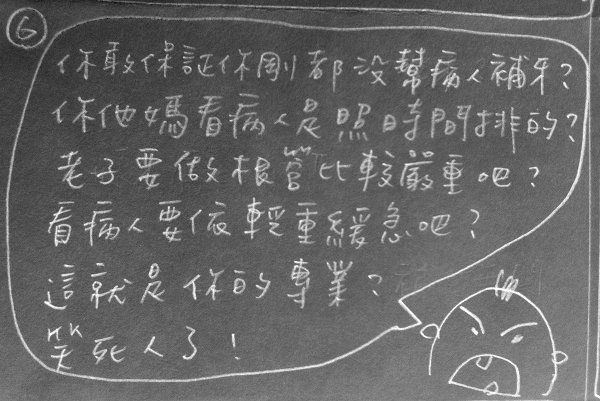 6
你敢保証你剛都沒幫病人補牙?
你他媽看病人是照時間排的?
老子要做根管比較嚴重吧?
看病人要依輕重緩急吧?
這就是你的專業?
笑死人了!